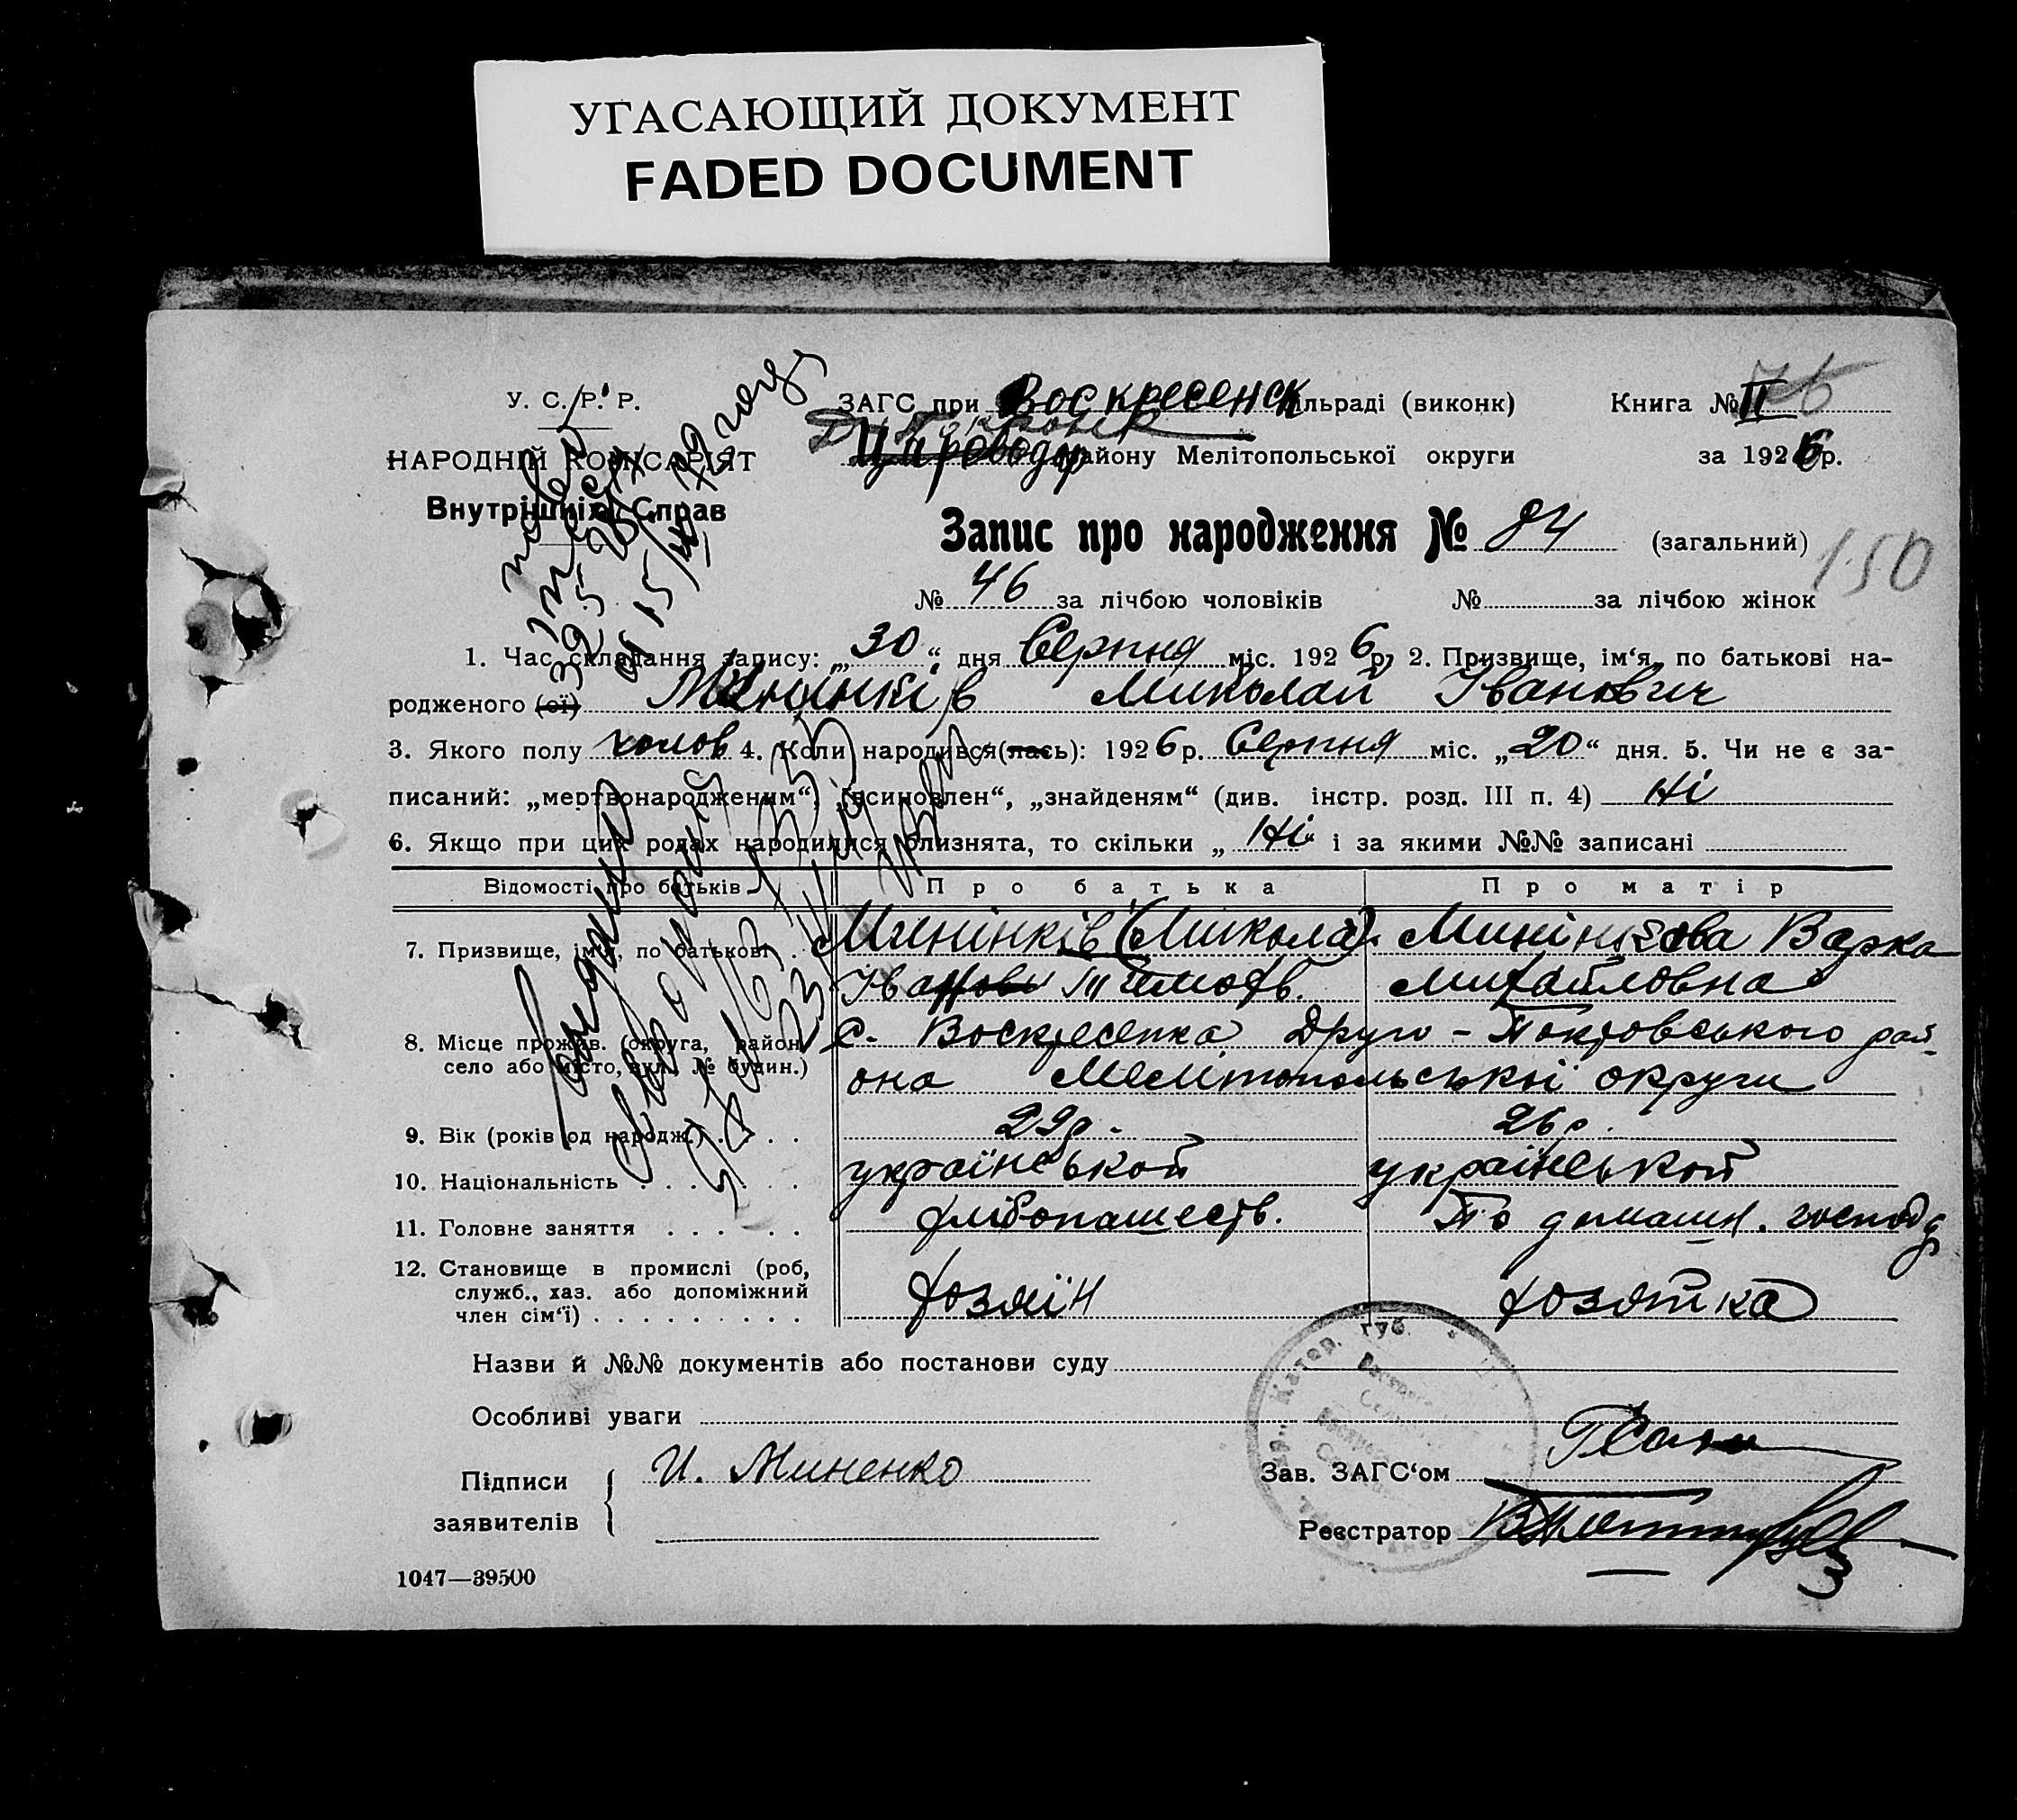 УГАСАЮЩИЙ ДОКУМЕНТ
FADED DOCUMENT
У. С. Р. Р.
НАРОДНІЙ КОМІСАРІЯТ
Внутрішніх Справ
ЗАГС при Воскресенск ільраді (виконк)
Книга № II 76
Царевод району Мелітопольської округи
за 1926 р.
Запис про народження № 84 (загальний)
150
№ 46 за лічбою чоловіків № за лічбою жінок
1. Час складання запису: „30“ дня Серпня міс. 1926 р. 2. Призвище, імʼя, по батькові на-
родженого (ої) Минінків Миколай Іванович
3. Якого полу чолов 4. Коли народився(лась): 1926 р. Серпня міс. „20“ дня. 5. Чи не є за-
писаний: „мертвонародженим“, „усиновлен“, „знайденям“ (див. інстр. розд. III п. 4) Ні
6. Якщо при цих родах народилися близнята, то скільки „Ні“ і за якими №№ записані
Відомості про батьків Про батька Про матір
7. Призвище, імʼя, по батькові . Минінків (Микола). Минінкова Варка
Іванови Тимофв. Михайловна
8. Місце прожив. (округа, район, с. Воскресенка Друго-Покровського рай-
село або місто, вул. № будин.) она Мелитопольської округи
9. Вік (років од народж.) . . . . 29 р. 26 р.
10. Національність . . . . . українськой українськой
11. Головне заняття . . . . . хлібопашеств. По домашн. господ
12. Становище в промислі (роб,
служб., хаз. або допоміжний
член сімʼї) . . . . . . . . . хозяїн хозяйка
Назви й №№ документів або постанови суду
Особливі уваги
Підписи
заявителів
И. Миненко
Зав. ЗАГСʻом
Реєстратор
1047—39500